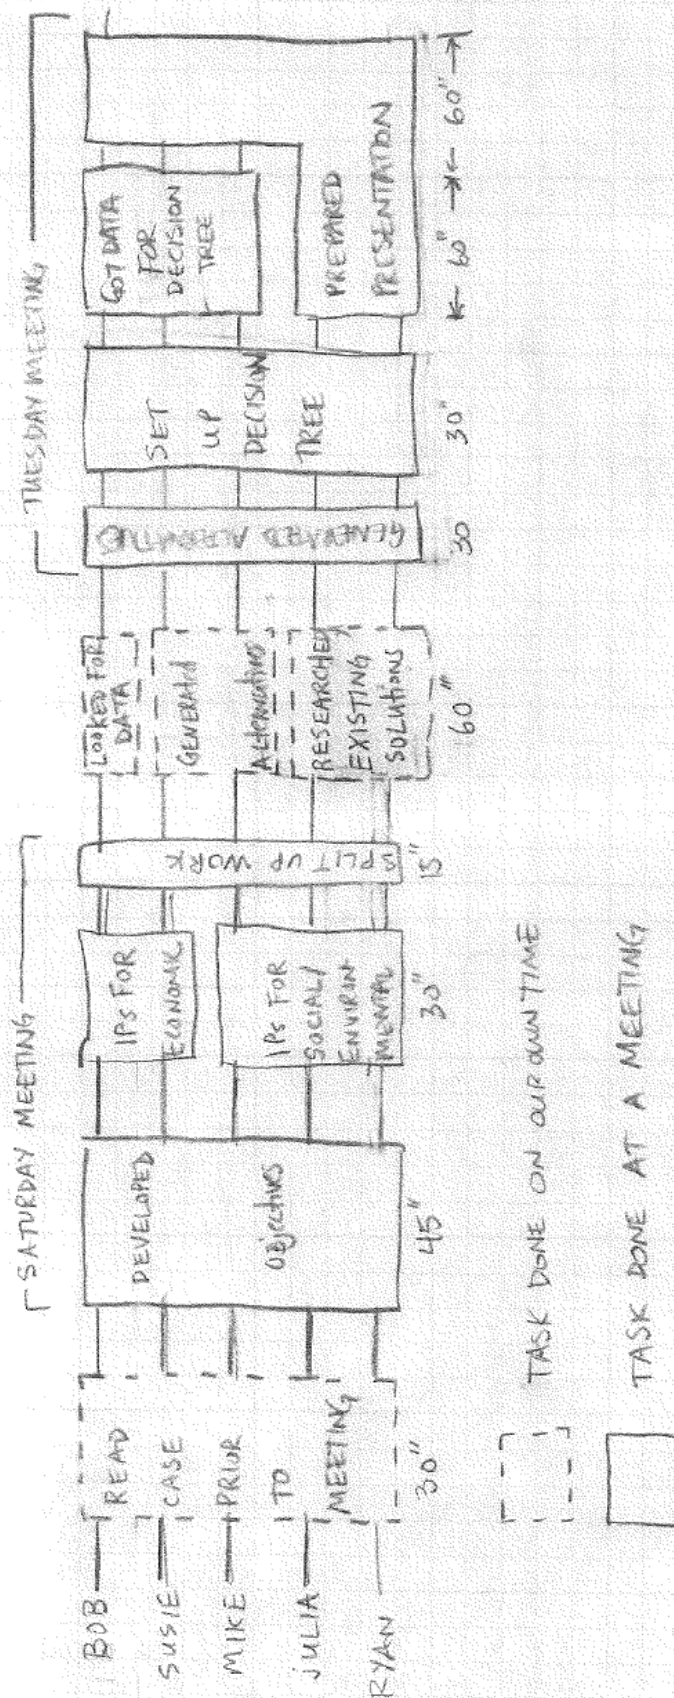 SATURDAY MEETING
TUESDAY MEETING
BOB
SUSIE
MIKE
JULIA
RYAN
READ
CASE
PRIOR
TO
MEETING
30"
DEVELOPED
Objectives
45"
IPs FOR
ECONOMIC
IPs FOR
SOCIAL/
ENVIRON
MENTAL
30"
SPLIT UP WORK
15"
LOOKED FOR
DATA
GENERATED
ALTERNATIVES
RESEARCHED
EXISTING
SOLUTIONS
60"
GENERATED ALTERNATIVES
30
SET
UP
DECISION
TREE
30"
GOT DATA
FOR
DECISION
TREE
PREPARED
PRESENTATION
60"
60"
TASK DONE ON OUR OWN TIME
TASK DONE AT A MEETING